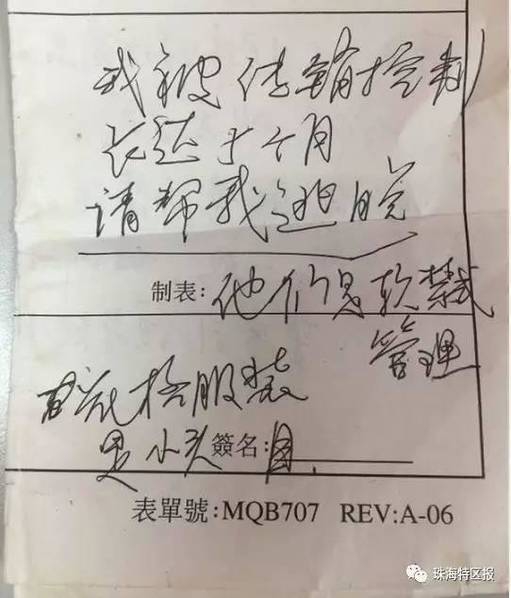 我被传销控制
长达十个月
请帮我逃脱
制表: 他们是软禁式
管理
花格服装
是小头 簽名: 目.
表單號:MQB707 REV:A-06
珠海特区报